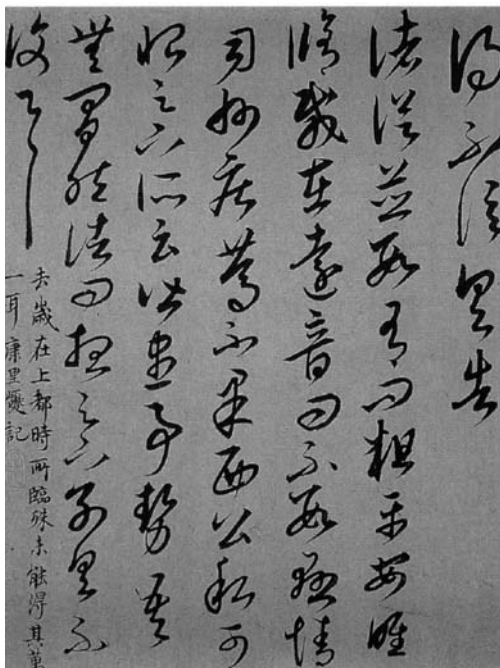 得不信具告
諸從並數有問粗平安唯
脩載在遠音問不數懸情
司州疾篤不果西公私可
恨足下所云皆盡事勢吾
無間然諸問想足下別具不
復一一
去歲在上都時所臨殊未能得其萬
一耳康里巎記